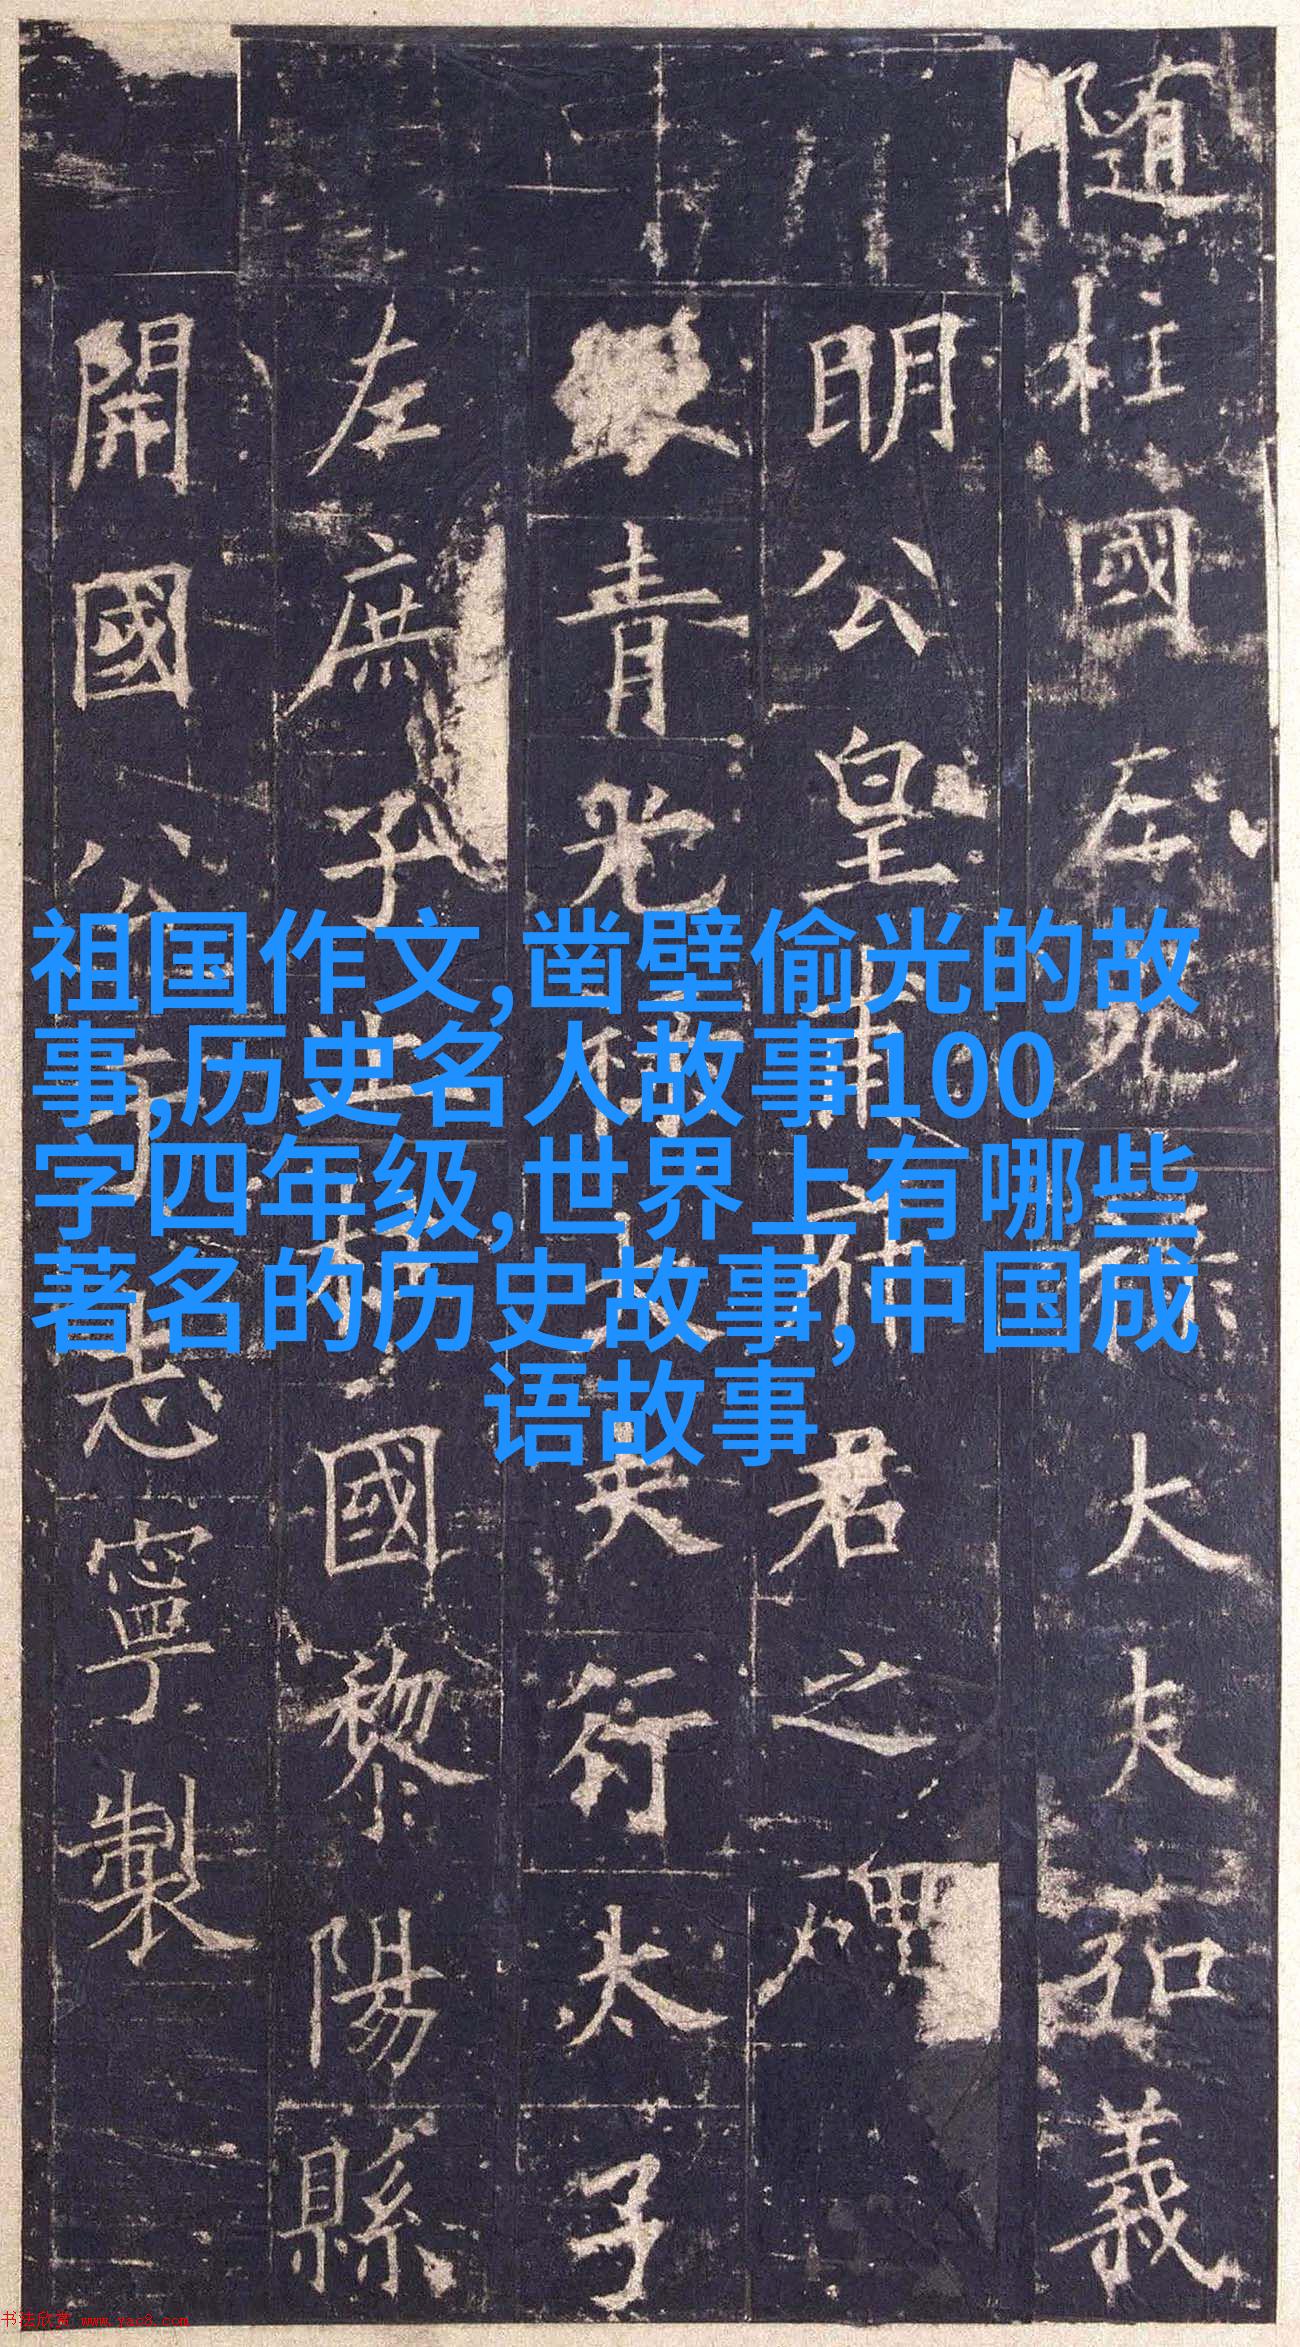 隨柱國左光祿大夫弘義
明公皇甫府君之碑
銀青光祿大夫行太子
左庶子上柱國黎陽縣
開國公于志寧製
祖国作文,凿壁偷光的故
事,历史名人故事100
字四年级,世界上有哪些
著名的历史故事,中国成
语故事
书法欣赏 www.yac8.com